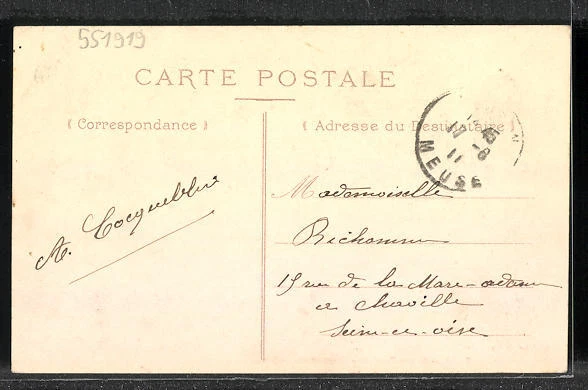 551919
CARTE POSTALE
( Correspondance )
( Adresse du Destinataire )
MEUSE
Mademoiselle
A.
Richomme
15 rue de la Mare-adam
a Chaville
Seine-et-oise